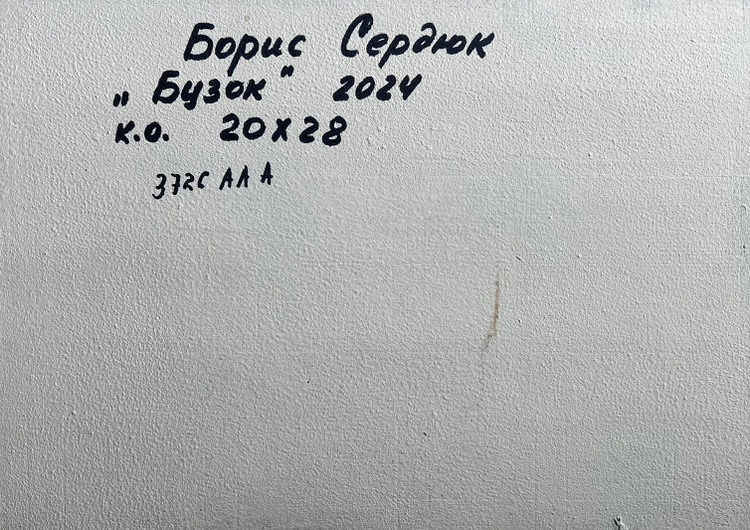 Борис Сердюк
„Бузок" 2024
к.о. 20х28
372С ААА